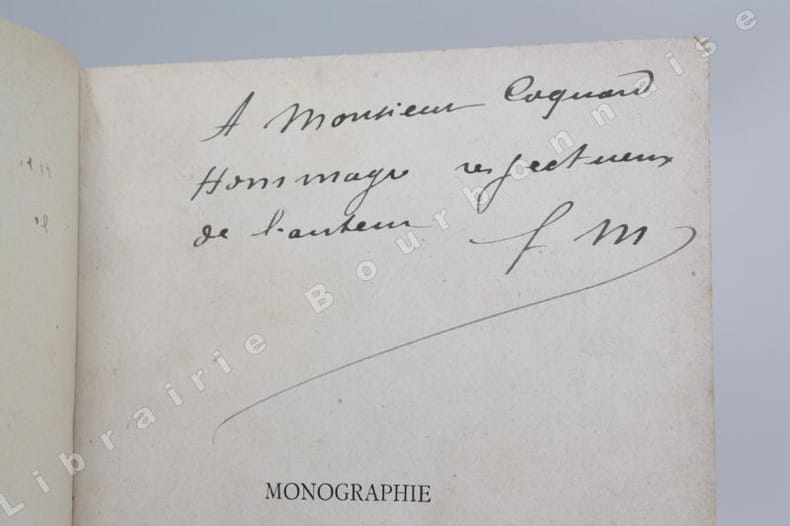 A Monsieur Coquard
Hommage respectueux
de l'auteur f. M
MONOGRAPHIE
Librairie Bourbonnaise